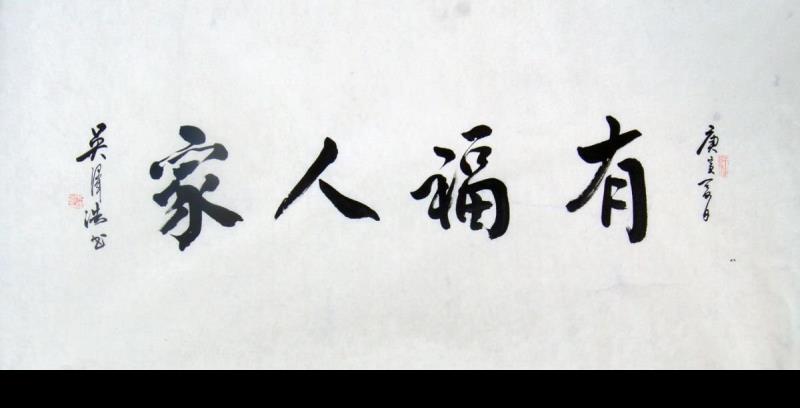 庚寅夏月
有福人家
吴泽浩书